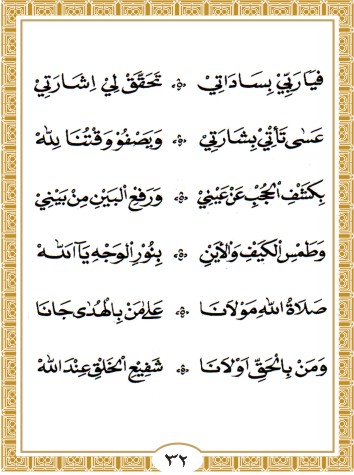 فَيَا رَبِّيْ بِسَادَاتِيْ ۞ تَحَقَّقْ لِيْ اِشَارَتِيْ
عَسٰى تَأْتِيْ بِشَارَتِيْ ۞ وَيَصْفُوْ وَقْتُنَا لِلّٰهْ
بِكَشْفِ الْحُجْبِ عَنْ عَيْنِيْ ۞ وَرَفْعِ الْبَيْنِ مِنْ بَيْنِيْ
وَطَمْسِ الْكَيْفِ وَالْاَيْنِ ۞ بِنُوْرِ الْوَجْهِ يَآ اَللّٰهْ
صَلَاةُ اللّٰهِ مَوْلَانَا ۞ عَلٰى مَنْ بِالْهُدٰى جَانَا
وَمَنْ بِالْحَقِّ اَوْلَانَا ۞ شَفِيْعِ الْخَلْقِ عِنْدَ اللّٰهْ
٣٢